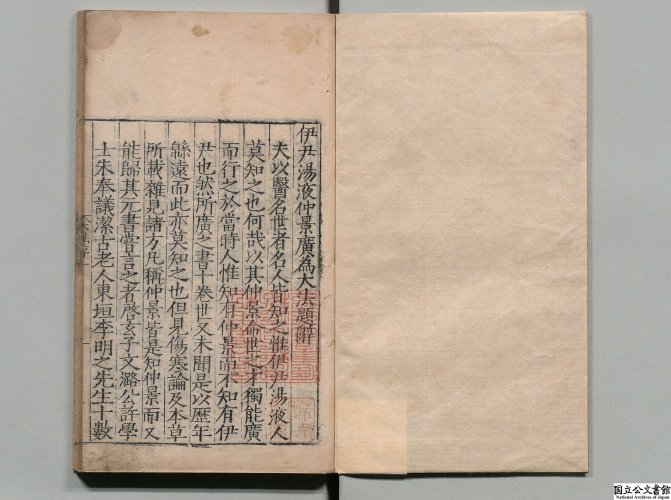 伊尹湯液仲景廣為大法題辭
夫以醫名世者名人皆知之惟伊尹湯液人
莫知之也何哉以其仲景命世之才獨能廣
而行之於當時人惟知有仲景而不知有伊
尹也然所廣之書十卷世又未聞是以歷年
緜遠而此亦莫知之也但見傷寒論及本草
所載雜見諸方凡稱仲景皆是知仲景而又
能歸其元書嘗言之者啓玄子文潞公許學
士朱奉議潔古老人東垣李明之先生十數
国立公文書館
National Archives of Japan